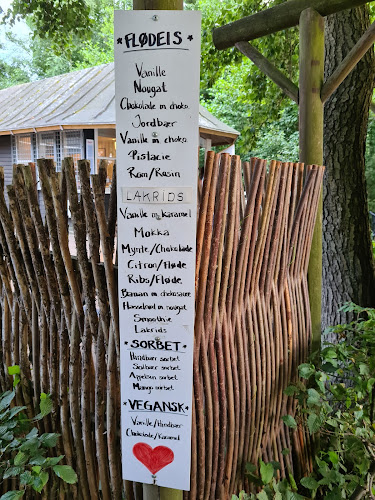 * FLØDEIS *
Vanille
Nougat
Chokolade m choko.
Jordbær
Vanille m choko.
Pistacie
Rom/Rosin
LAKRIDS
Vanille m karamel
Mokka
Mynte/Chokolade
Citron/Fløde
Ribs/Fløde
Banan m chokosauce
Hasselnød m nougat
Smoothie
Lakrids
* SORBET *
Hindbær sorbet
Solbær sorbet
Appelsin sorbet
Mango sorbet
* VEGANSK *
Vanille/Hindbær
Chokolade/Karamel